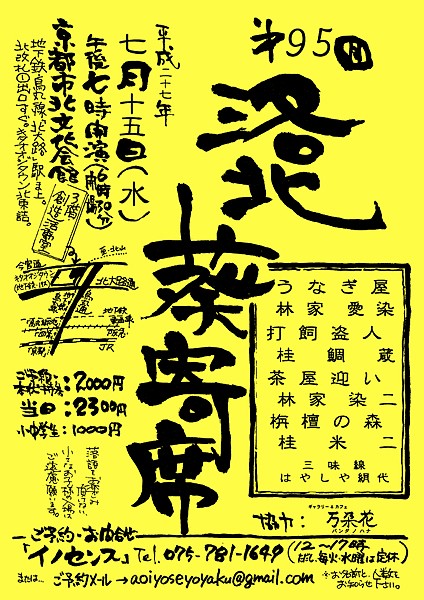 第95回
洛北
葵寄席
平成二十七年
七月十五日(水)
午後七時開演(六時30分開場)
京都市北文化会館
3階
創造活動室
地下鉄烏丸線「北大路」駅上。
北改札①出口すぐ。キタオオジタウン北東詰。
至.北山
今宮通
北大路通
烏丸通
地下鉄
JR
うなぎ屋
林家 愛染
打飼盗人
桂 鯛蔵
茶屋迎い
林家 染二
栴檀の森
桂 米二
三味線
はやしや絹代
ご予約・
:2,000円
当日:2300円
小中学生:1000円
落語をお楽しみ
頂けない
小さなお子様の入場は
ご遠慮願います。
ギャラリー&カフェ
協力:万朶花
バンダノハナ
ご予約・お問合せ
「イノセンス」Tel.075-781-1649(12~17時
但し、毎火・水曜は定休)
または… ご予約メール→aoiyoseyoyaku@gmail.com
※お名前と人数を
お知らせ下さい。